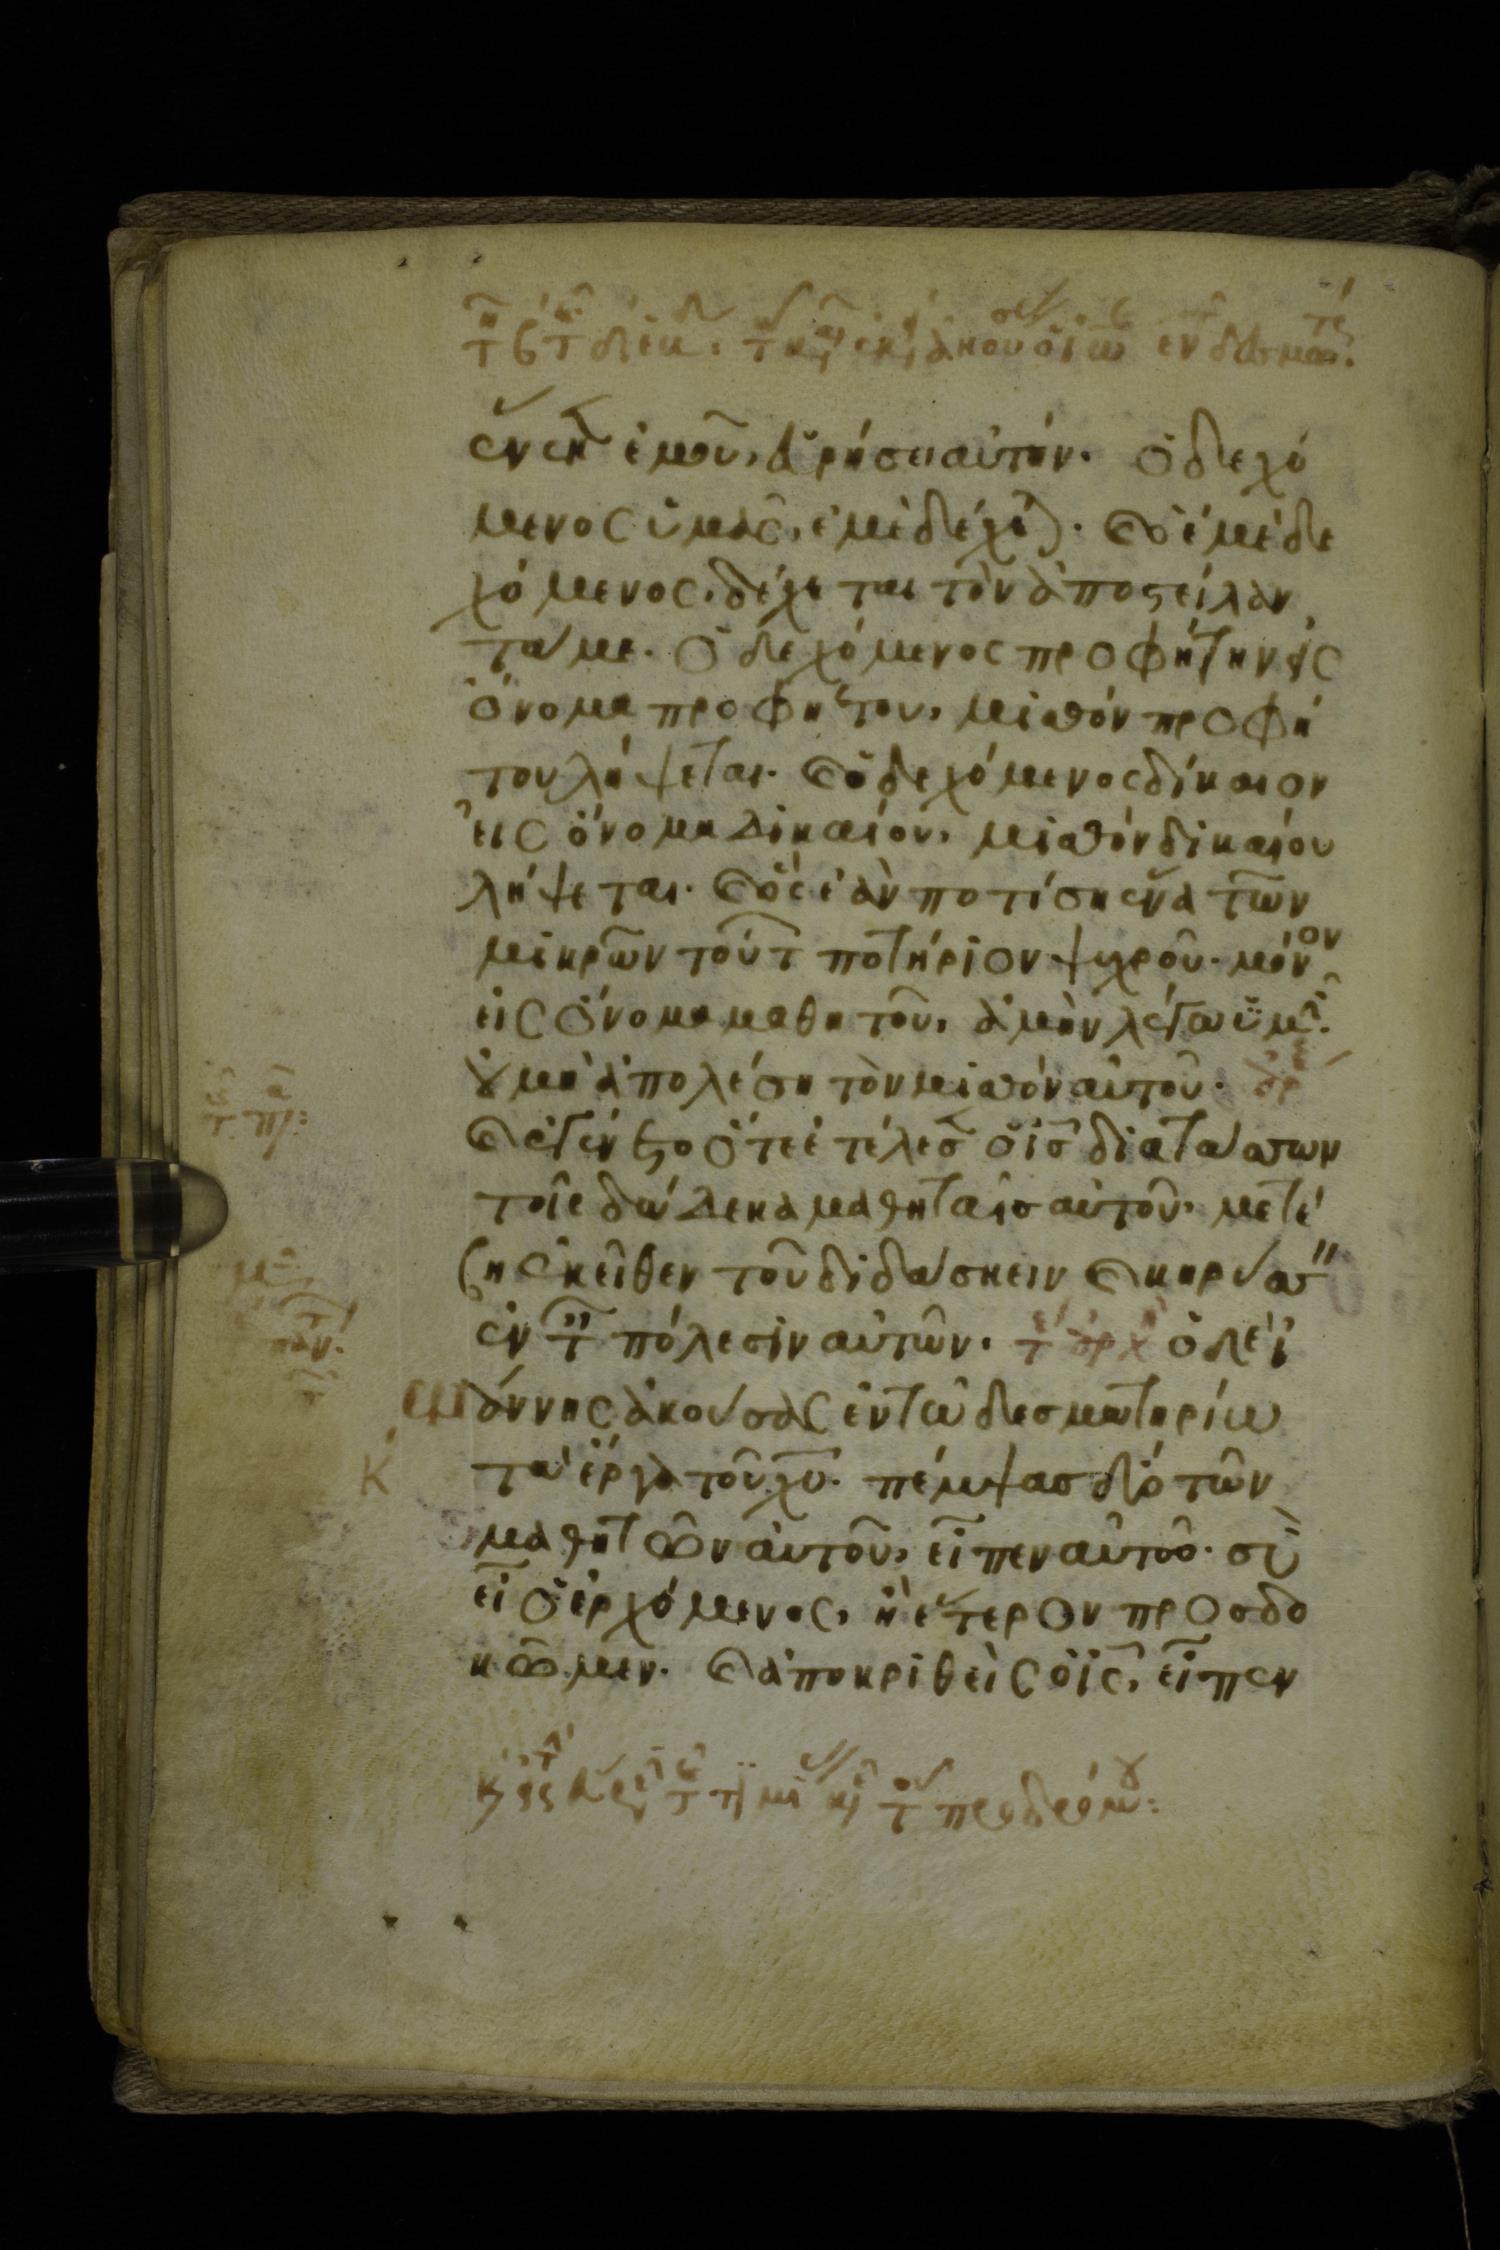 ενεκ ἐμοῦ, εὑρήσει αὐτήν. ὁ δεχό
μενος ὑμᾶς, ἐμὲ δέχετ. καὶ ὁ ἐμὲ δε
χόμενος, δέχεται τὸν ἀποστείλαν
τά με. ὁ δεχόμενος προφήτην εἰς
ὄνομα προφήτου, μισθὸν προφή
του λήψεται. καὶ ὁ δεχόμενος δίκαιον
εἰς ὄνομα δικαίου, μισθὸν δικαίου
λήψεται. καὶ ὃς ἐὰν ποτίση ἕνα τῶν
μικρῶν τούτ ποτήριον ψυχροῦ. μόνον
εἰς ὄνομα μαθητοῦ, ἀμὴν λέγω ὑμῖ.
οὐ μὴ ἀπολέση τὸν μισθὸν αὐτοῦ.
καὶ ἐγένετο ὅτε ἐτέλεσ ὁ ις διατάσσων
τοῖς δώδεκα μαθηταῖς αὐτοῦ, μετέ
βη ἐκεῖθεν τοῦ διδάσκειν καὶ κηρύσ
ἐν τ πόλεσιν αὐτῶν. ὁ δὲ ἰ
ωάννης ἀκούσας ἐν τῶ δεσμωτηρίω
Κ τὰ ἔργα τοῦ χυ. πέμψας δύο τῶν
μαθητῶν αὐτοῦ, εἶπεν αὐτῶ. σὺ
εἶ ὁ ἐρχόμενος, ἢ ἕτερον προσδο
κῶμεν. καὶ ἀποκριθεὶς ὁ ις, εἶπεν